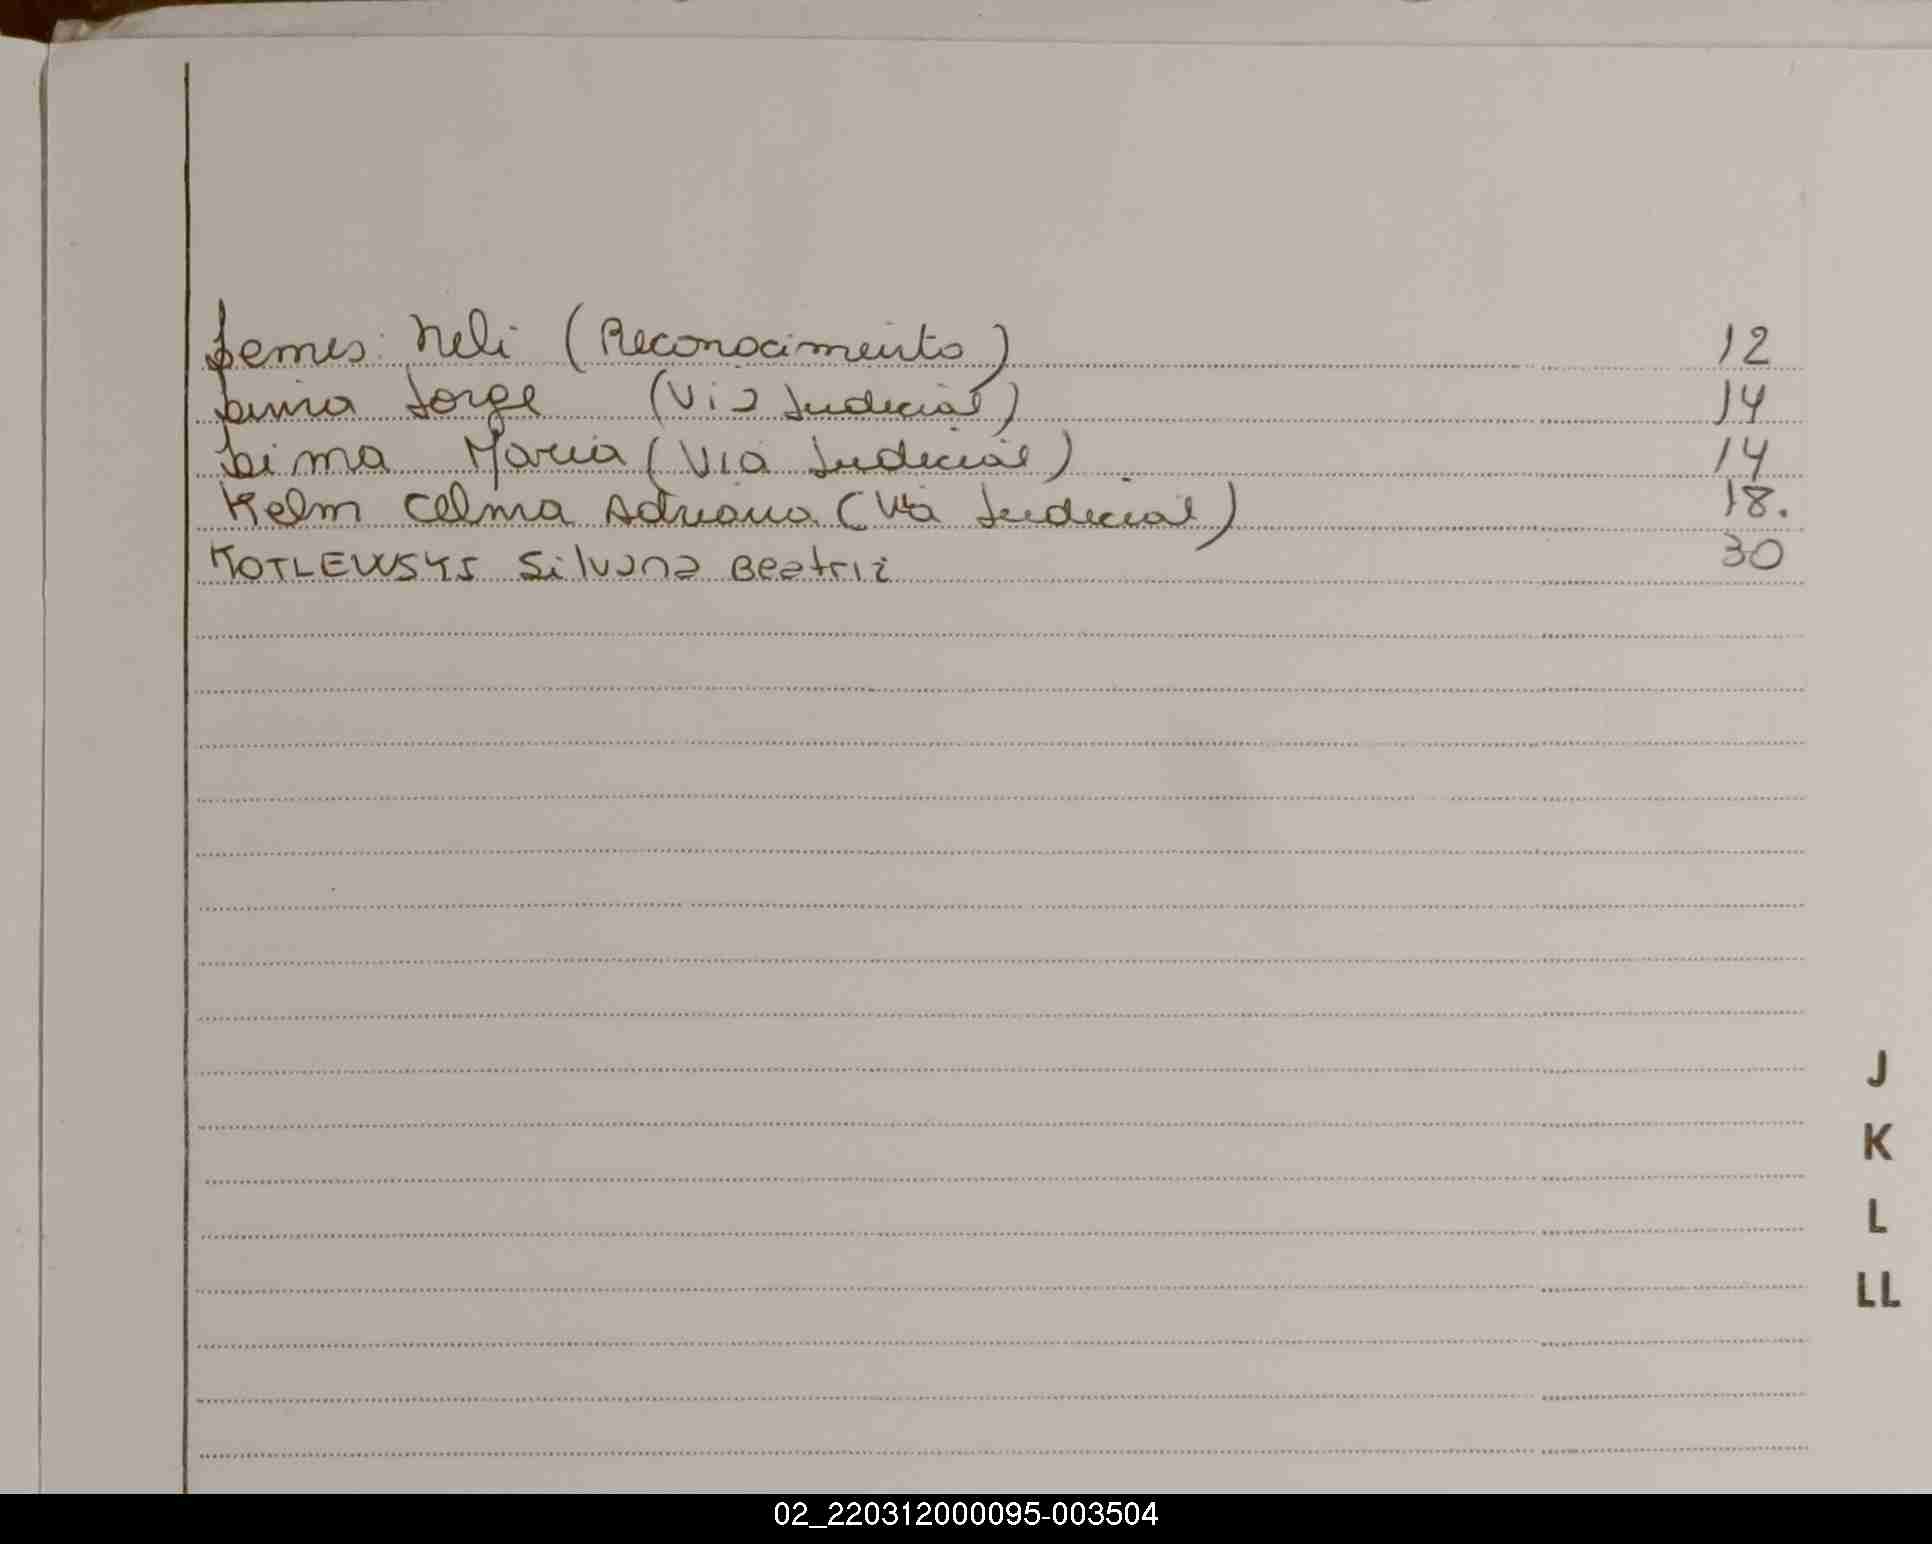 Lemes Neli (Reconocimiento) 12
Lima Jorge (Via Judicial) 14
Lima Maria (Via Judicial) 14
Kelm Celma Adriana (Via Judicial) 18.
KOTLEWSYS Silvana Beatriz 30
J
K
L
LL
02_220312000095-003504